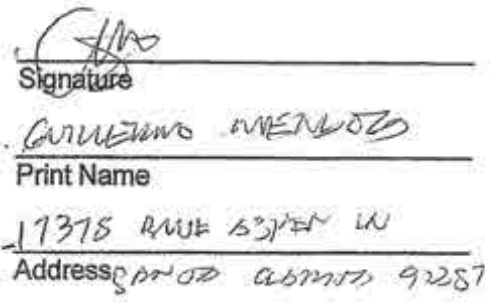 Signature
GUILLERMO MENDOZA
Print Name
17375 BLUE ASPEN LN
Address
92287